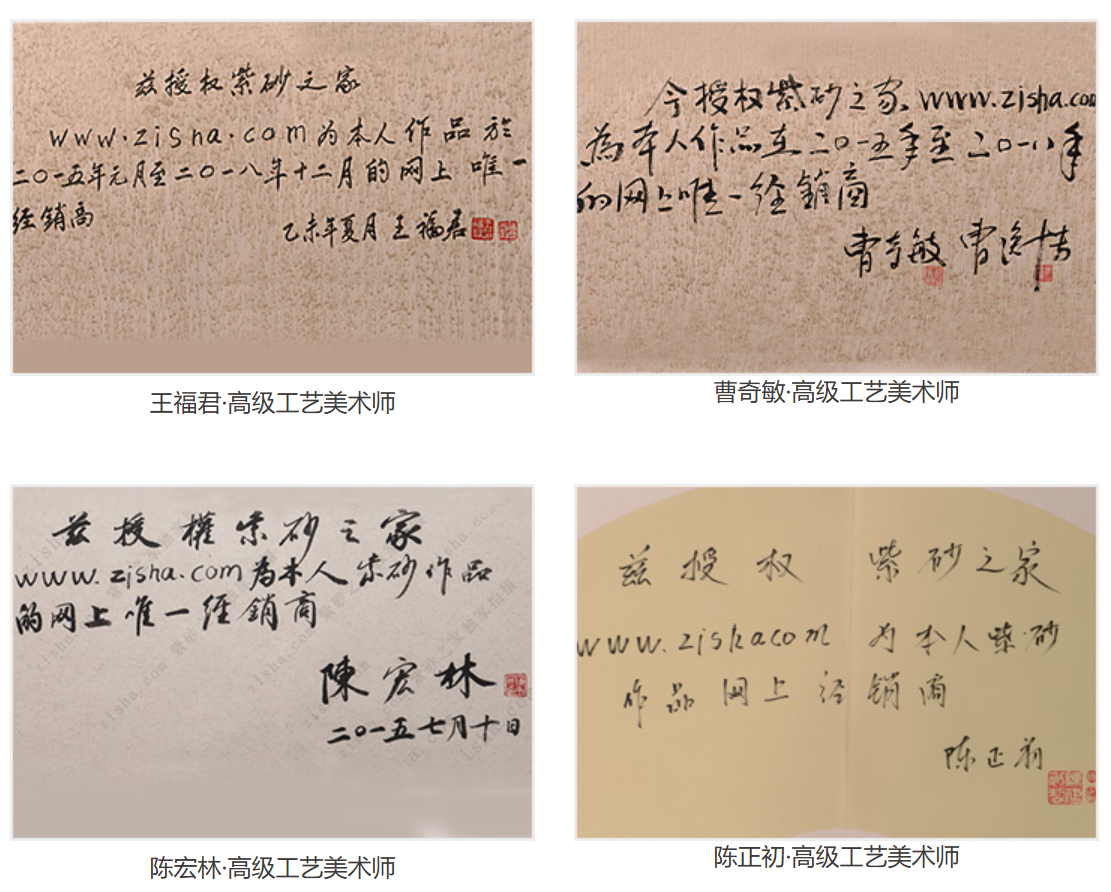 兹授权紫砂之家
www.zisha.com为本人作品於
二〇一五年元月至二〇一八年十二月的网上唯一
经销商
乙未年夏月 王福君
王福君·高级工艺美术师
今授权紫砂之家 www.zisha.com
為本人作品在二〇一五年至二〇一八年
的网上唯一经销商
曹奇敏
曹奇敏·高级工艺美术师
兹授權紫砂之家
www.zisha.com為本人紫砂作品
的网上唯一经銷商
陳宏林
二〇一五七月十日
陈宏林·高级工艺美术师
兹授权 紫砂之家
www.zishacom 为本人紫砂
作品网上经销商
陈正初
陈正初·高级工艺美术师